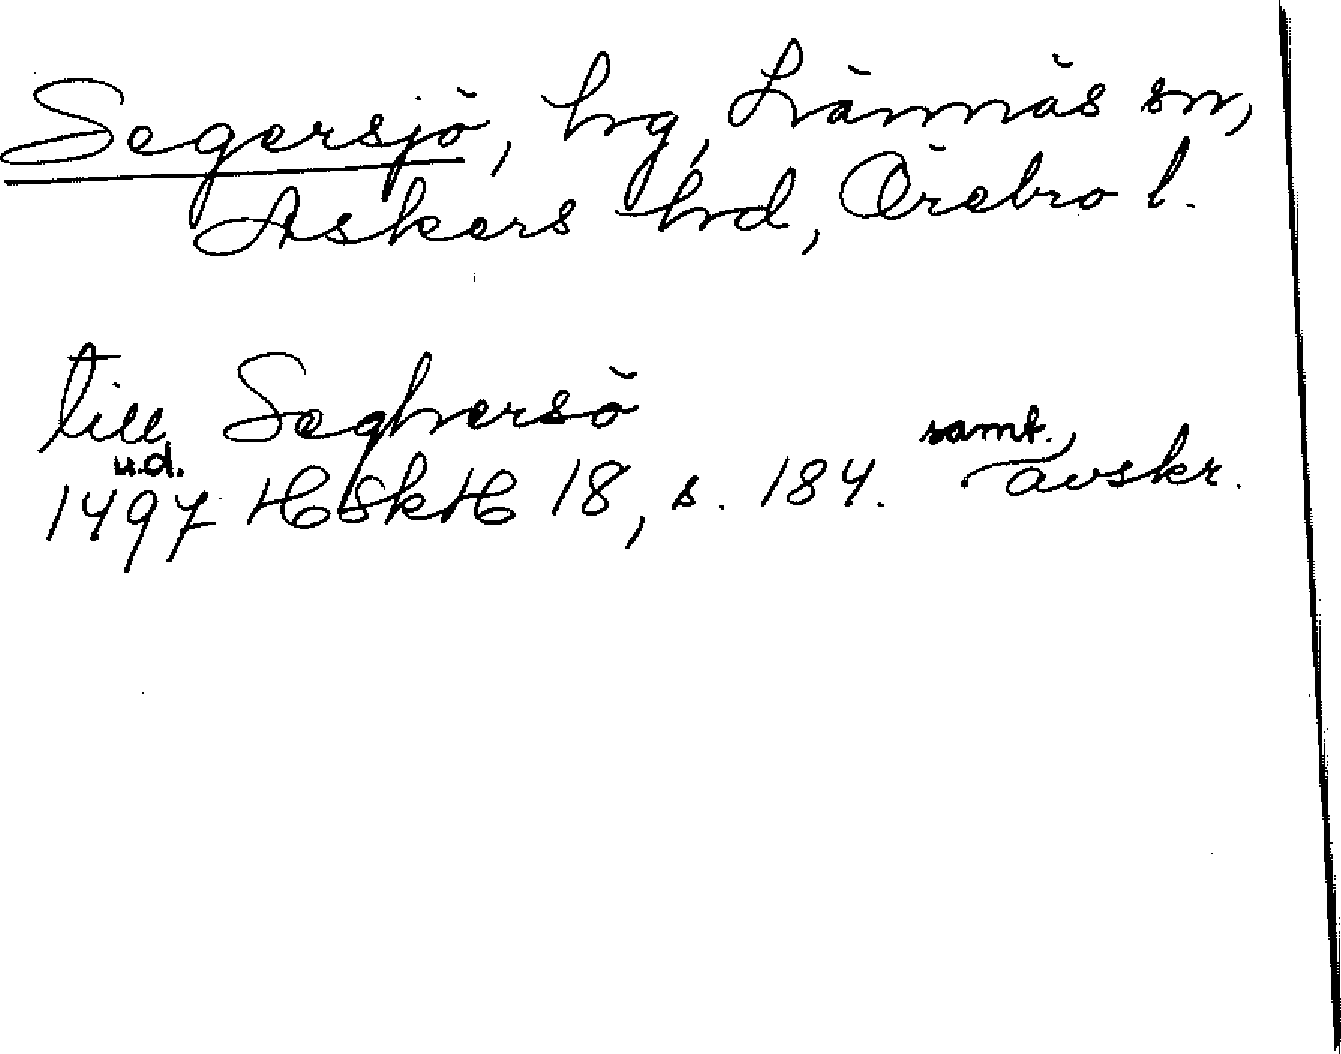 Segersjö, hrg, Lännäs sn,
Askers hrd, Örebro l.
till Seghersö
u.d.
1497 HSkH 18, s. 184. samt. avskr.